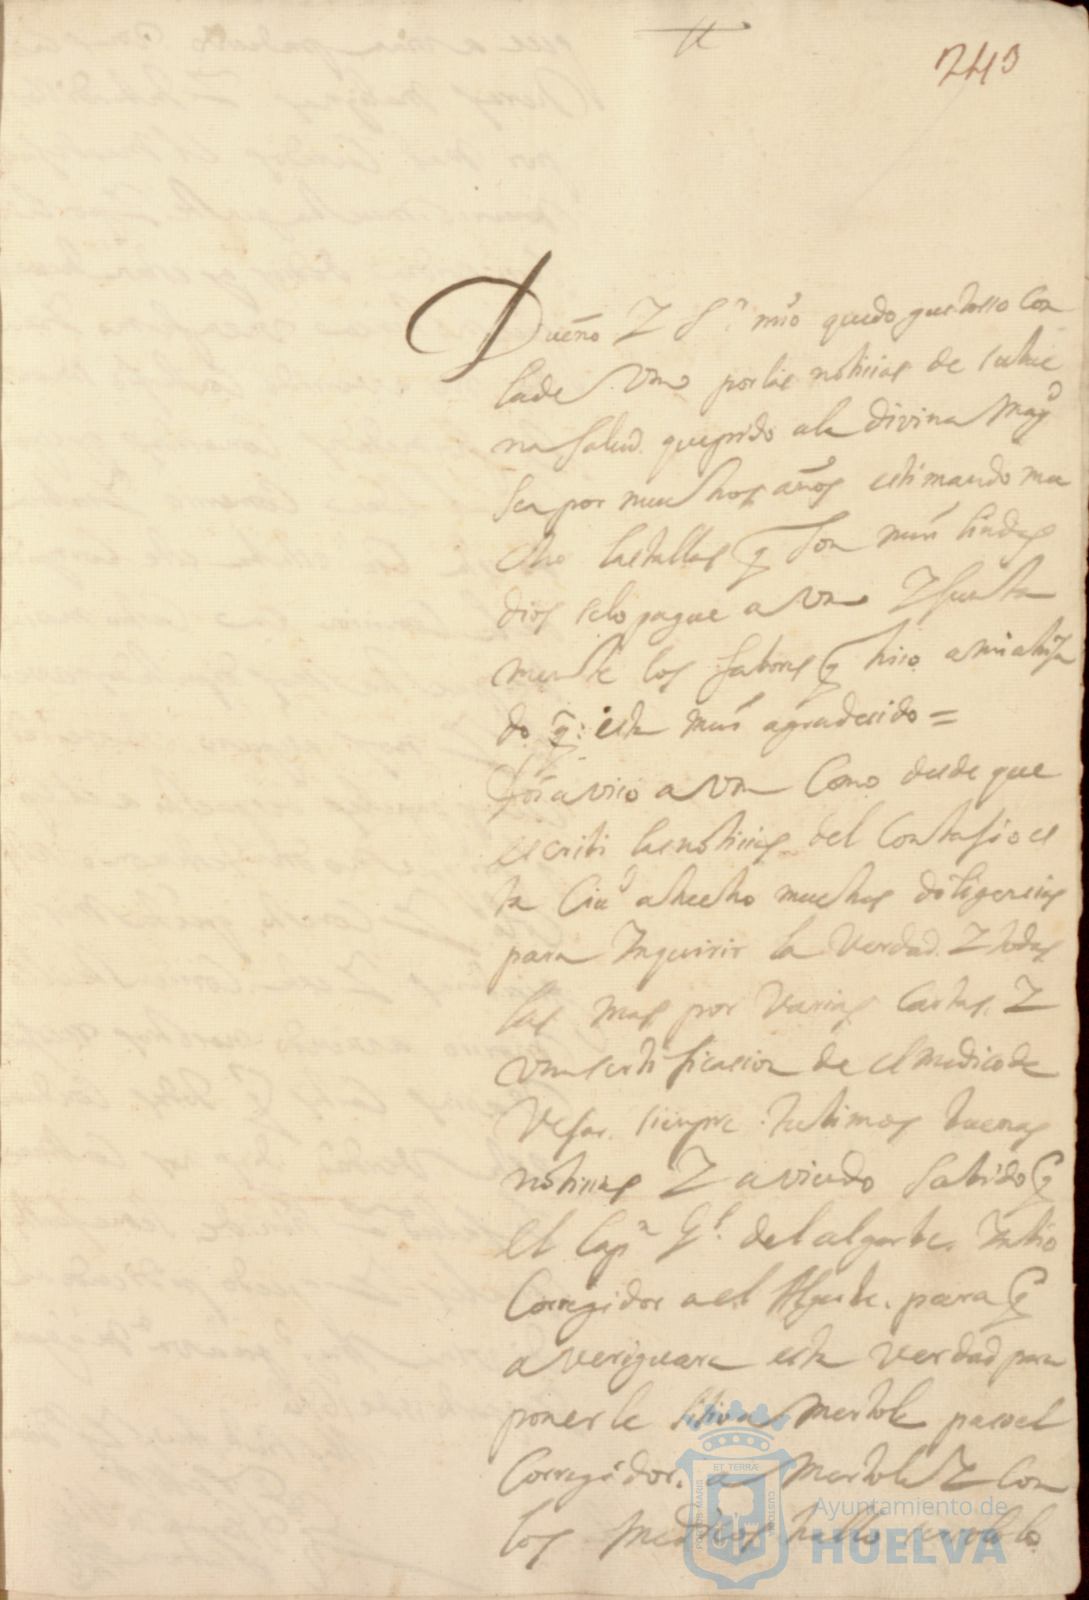 243
Dueño Y Sr mio quedo gustosso Con
lade Vm por las noticias de su bue
na salud. quepido ala divina Magd
sea por muchos años estimando mu
cho lastallas q son mui lindas
dios selo pague a Vm Y Junta
mente los fabores q hiso amiahija
do q: esta mui agradesido =
Doi aviso a Vm Como desde que
escribi lasnoticias del Contajio es
ta Ciud ahecho muchas diligencias
para Inquirir la Verdad. Y todas
las mas por Varias Cartas, Y
Vnasertificasion de elmedicode
Vejar. siempre tubimos buenas
noticias Y aviendo sabido q
el Capn Gl. del algarbe. Inbio
Corregidor a el Algarbe. para q
averiguara esta verdad para
ponerle sitio a Mertola pasoel
Corregidor. a Mertola Y Con
los Medicos hallo
PORTUS MARIS ET TERRÆ CUSTODIA
Ayuntamiento de
HUELVA